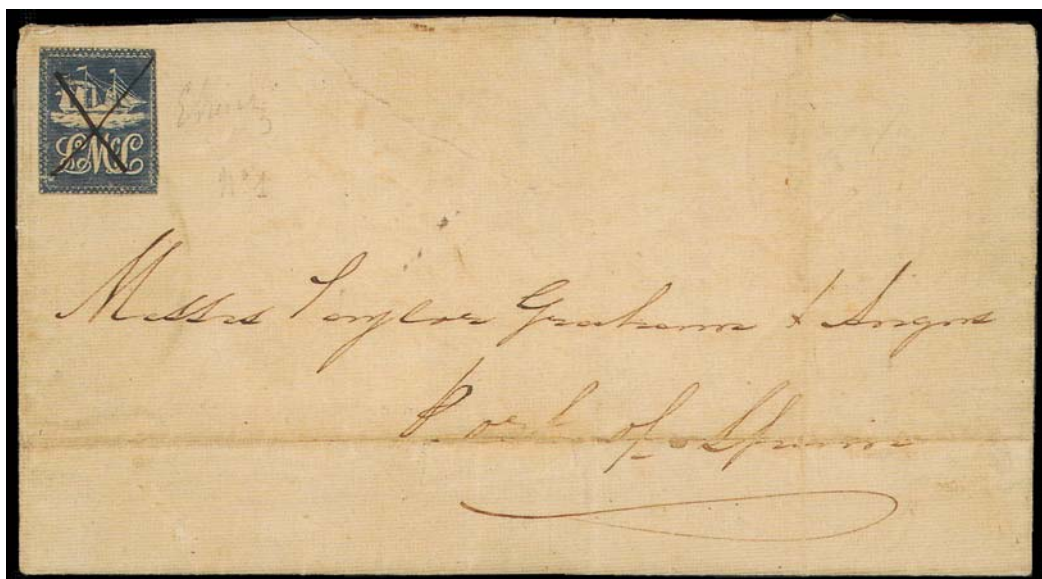 LMcL
Nº 1
Messrs Taylor Graham & Angus
Port of Spain